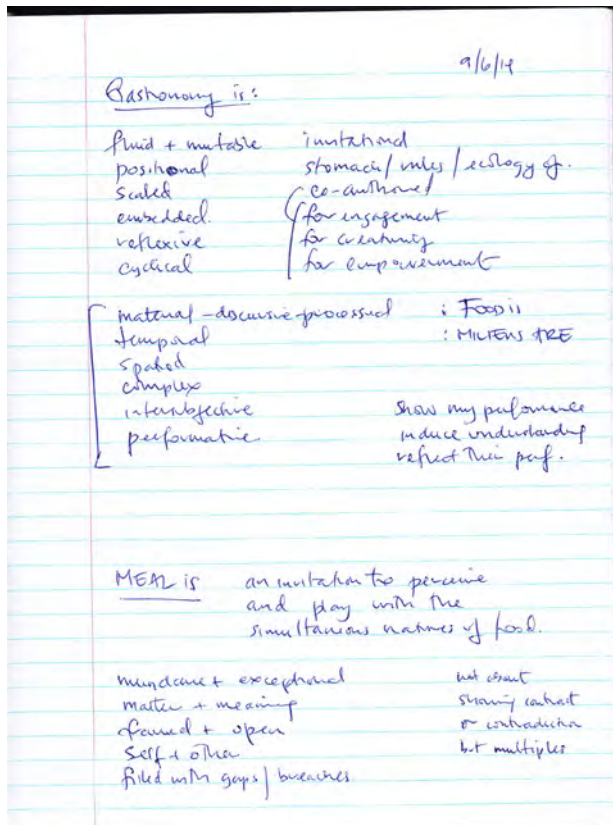 9/6/14
Gastronomy is:
fluid + mutable
positional
scaled
embedded.
reflexive
cyclical
invitational
stomach / rules / ecology of.
co-authored
for engagement
for creativity
for empowerment
material-discursive-processual
temporal
spatial
complex
intersubjective
performative
: FOOD is
: MILIEUS ARE
show my performance
induce understanding
reflect their perf.
MEAL is
an invitation to perceive
and play with the
simultanious natures of food.
mundane + exceptional
matter + meaning
framed + open
self + other
filled with gaps / breaches
not about
showing contrast
or contradiction
but multiples